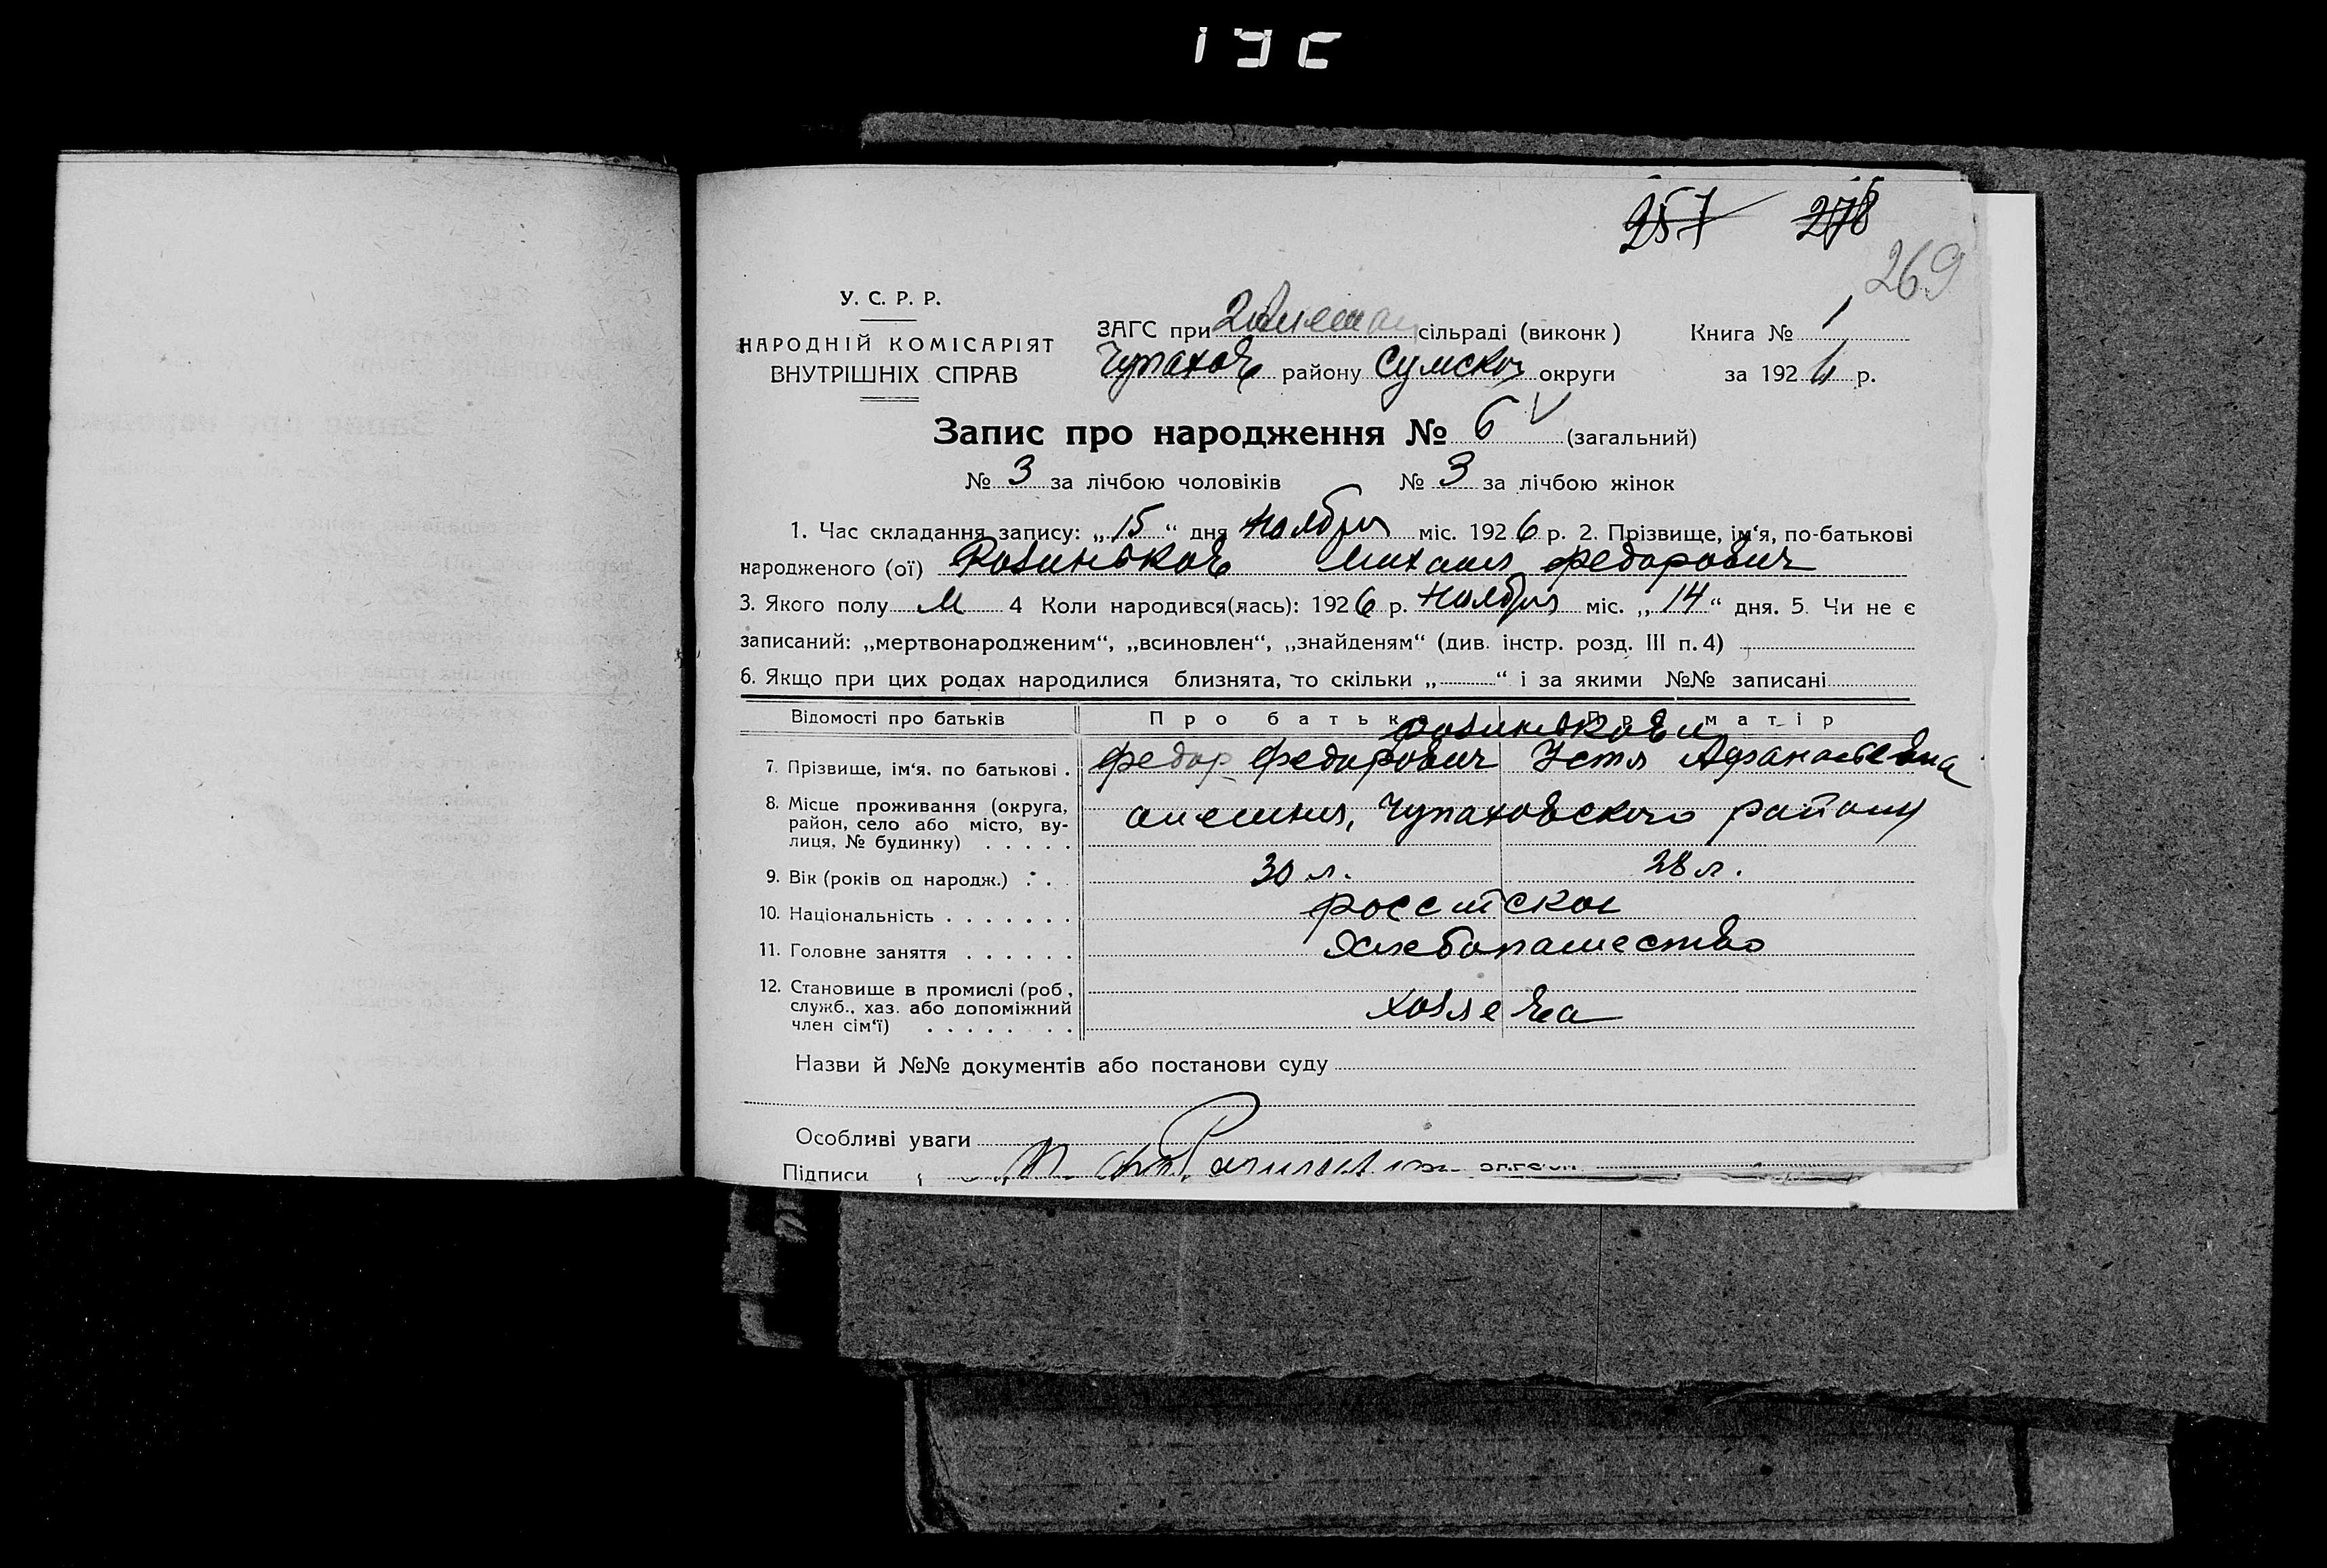 257 278
269
У. С. Р. Р.
НАРОДНІЙ КОМІСАРІЯТ
ВНУТРІШНІХ СПРАВ
ЗАГС при сільраді (виконк)
Чупахов району Сумской округи
Книга № 1
за 1926 р.
Запис про народження № 6 (загальний)
№ 3 за лічбою чоловіків № 3 за лічбою жінок
1. Час складання запису: „15“ дня Ноября міс. 1926 р. 2. Прізвище, ім‘я, по-батькові
народженого (ої) Розиньков Михаил Федорович
3. Якого полу М 4 Коли народився(лась): 1926 р. Ноября міс. „14“ дня. 5. Чи не є
записаний: „мертвонародженим“, „всиновлен“, „знайденям“ (див. інстр. розд. III п. 4)
6. Якщо при цих родах народилися близнята, то скільки „ “ і за якими №№ записані
Відомості про батьків Про батька Про матір
Розиньковы
7. Прізвище, ім‘я. по батькові . Федор Федорович Устя Афанасьевна
8. Місце проживання (округа,
район, село або місто, ву-
лиця, № будинку) . . . . . Олешня, Чупаховского району
9. Вік (років од народж.) . . . 30 л. 28 л.
10. Національність . . . . . . . российской
11. Головне заняття . . . . . . Хлебопашество
12. Становище в промислі (роб.,
служб., хаз. або допоміжний
член сім‘ї) . . . . . . . хозяева
Назви й №№ документів або постанови суду
Особливі уваги
Підписи